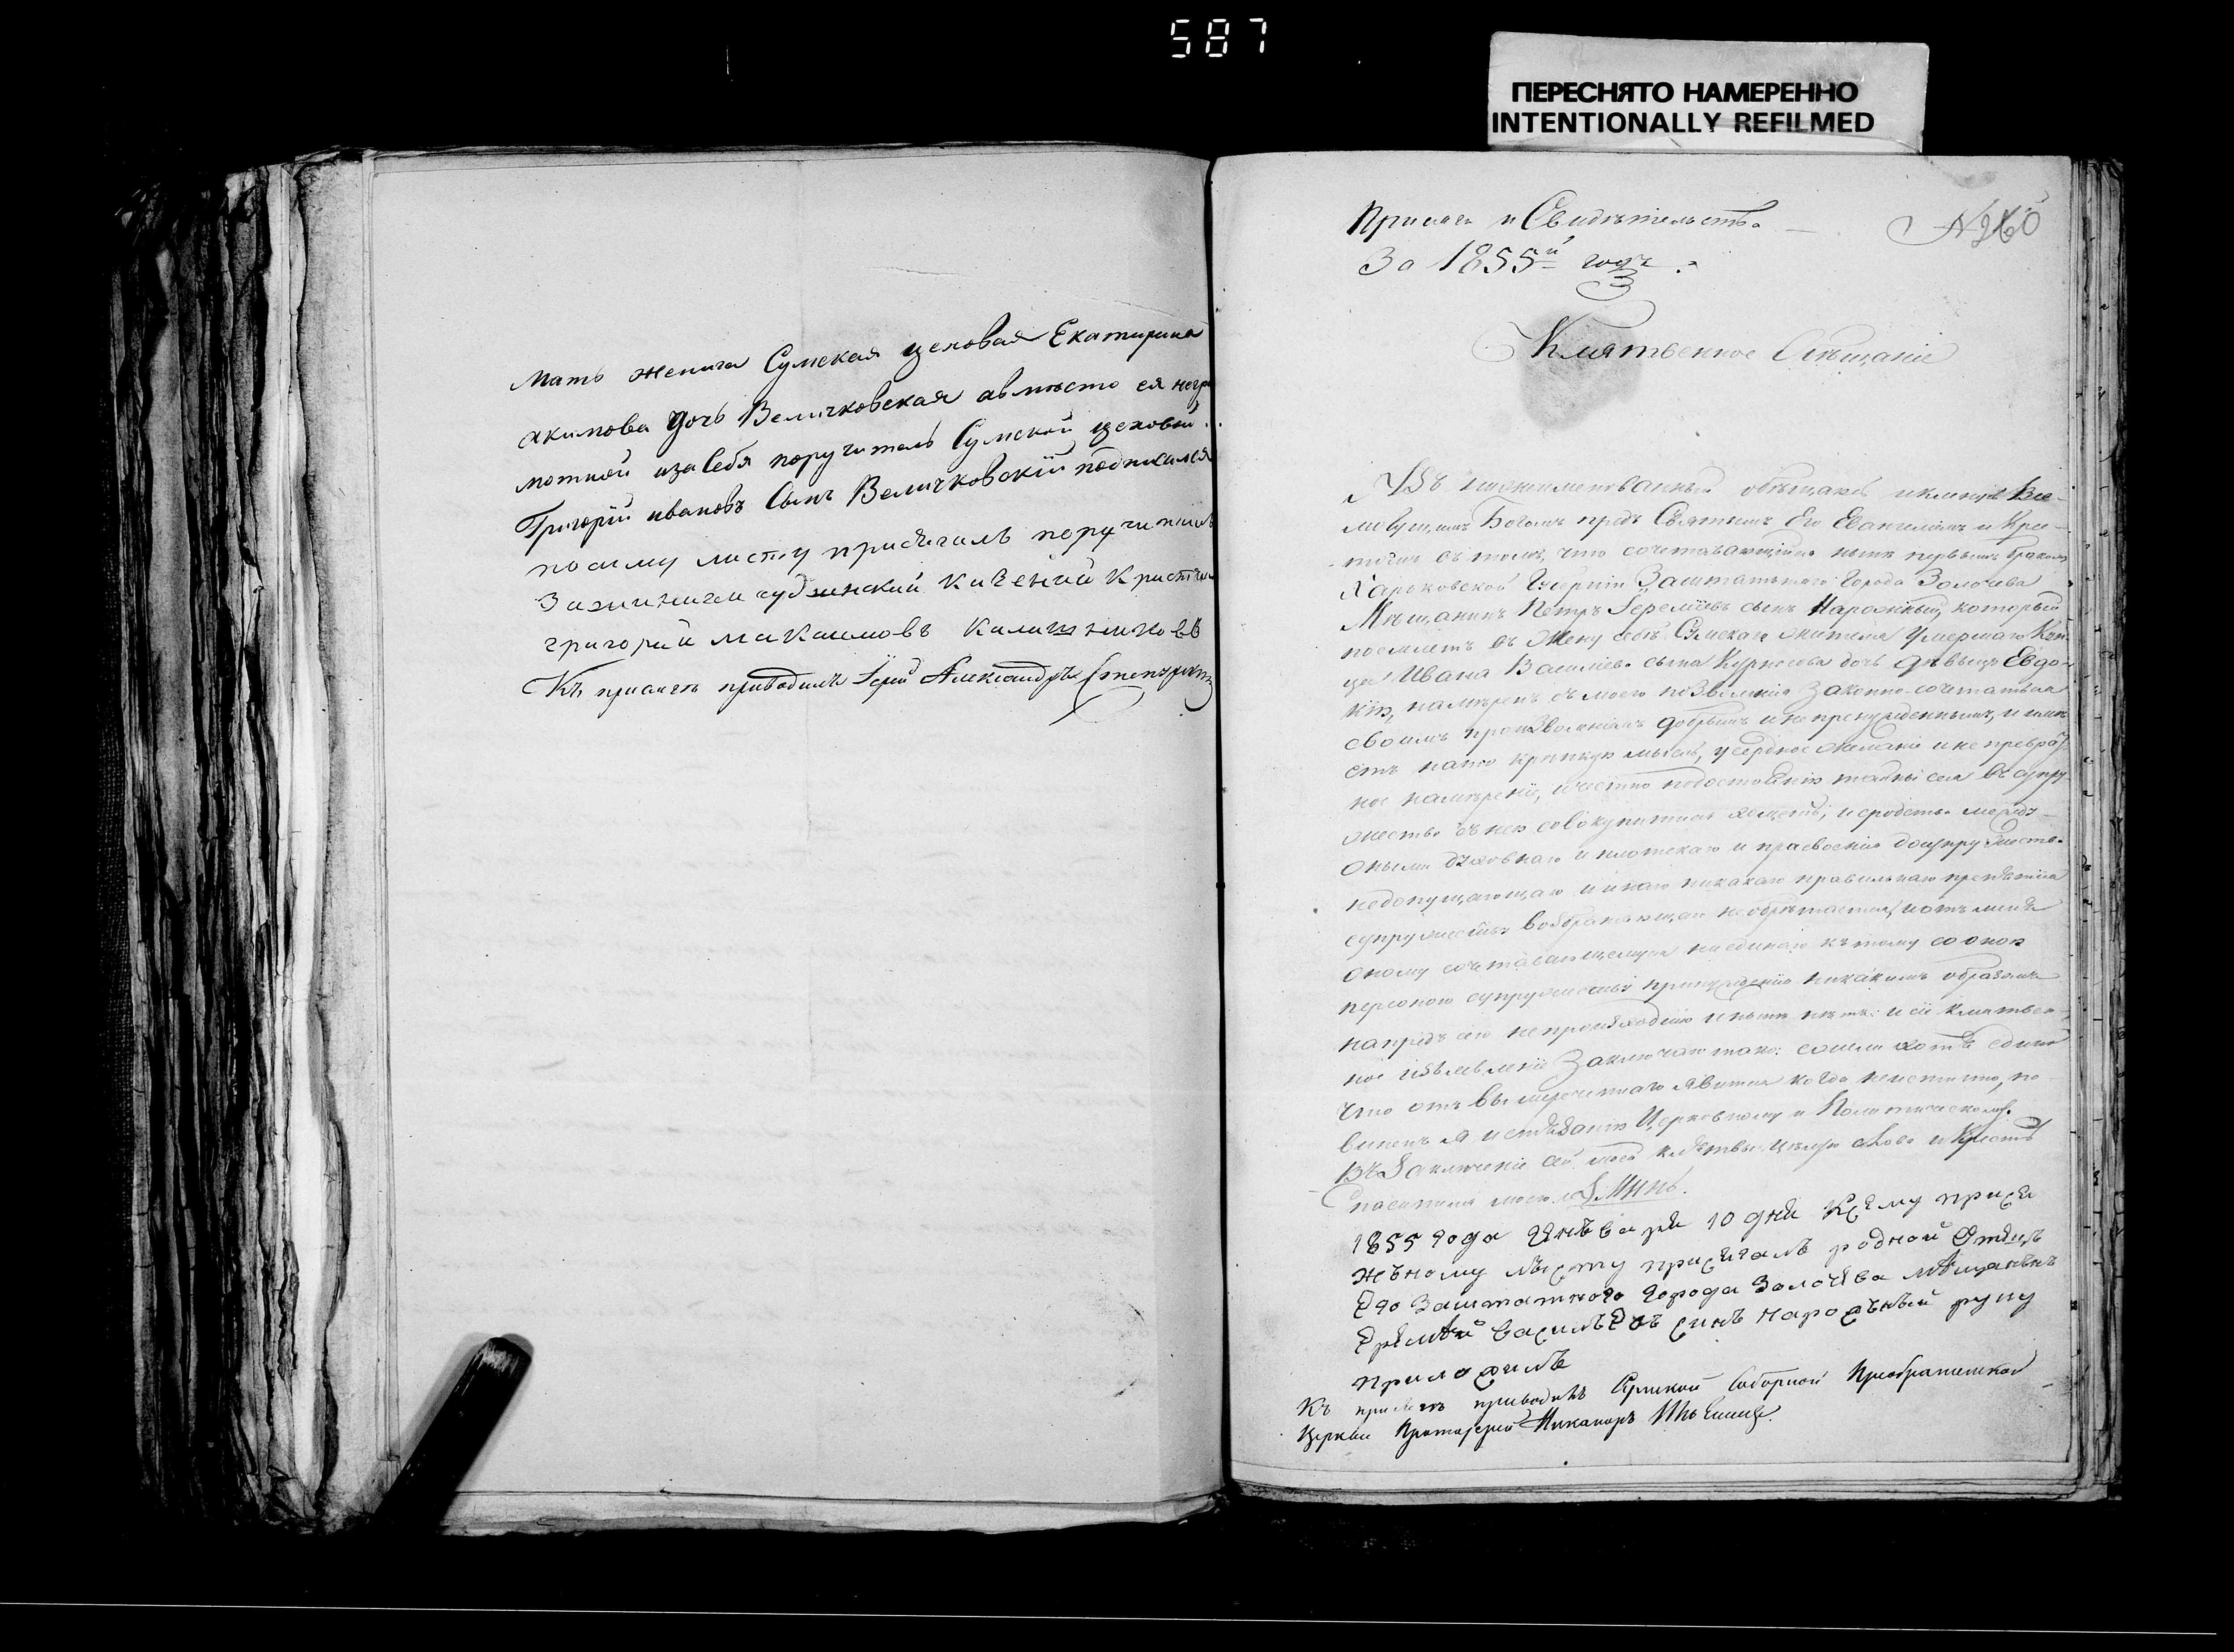 587
ПЕРЕСНЯТО НАМЕРЕННО
INTENTIONALLY REFILMED
мать жениха Сумская цеховая Екатирина
якимова дочь Величковская авместо ея негра
мотной изасебя поручитель Сумской цеховый
Григорій ивановъ Сынъ Величковскій подписался
посему листу присягалъ поручитель
григорий максимовъ Калашниковъ
Къ присягѣ приводилъ Іерей Александръ
Присяга и Свидѣтельство
№ 260
За 1855й годъ
Клятвенное Обѣщаніе
Азъ нижеименованный обѣщаюсь и клянуся Все-
могущимъ Богомъ предъ Святымъ Его Евангеліемъ и Кре-
стомъ въ томъ, что сочетавающійся нынѣ первымъ бракомъ
Харьковской Губерніи Заштатнаго Города Золочева
Мѣщанинъ Петръ Іереміевъ сынъ Нарожный, который
поемлетъ въ Жену себѣ Сумскаго жителя умершаго Куп-
ца Ивана Васильева сына Курисова дочь дѣвицу Евдо-
кію, намѣренъ съ моего позволенія Законно-сочетаться
своимъ произволеніемъ добрымъ и не принужденнымъ, и имѣ
етъ на то крѣпкую мысль, усердное желаніе и не превра
ное намѣреніе, и честно по достоянію тайны сея въ супру
жество съ нею совокупитися хощетъ, и сродства между
оными духовнаго и плотскаго и присвоенія до супружества
недопущающаго и инаго никакаго правильнаго препятія
супружеству возбраняющаго не обрѣтается, и отъ мене
оному сочетавающемуся ни единаго къ тому со оною
персоною супружеству принужденія никакимъ образомъ
напредъ сего не происходило и нынѣ нѣтъ: и сіе клятвен-
ное изъявленіе Заключаю тако: ежели хотя едино
что отъ вышереченнаго явится когда неистинно, по
виненъ я истязанію Церковному и Политическому.
Въ Заключеніе сей моей клятвы цѣлую слова и Крестъ
Спасителя моего Аминь.
1855 года Января 10 дня Ксему прися
жному листу присягалъ родной Отецъ
Его Заштатного города Золочева мѣщанинъ
Еремѣй василѣевъ синъ нарожный руку
приложилъ
Къ присягѣ приводилъ Сумской Соборной Преображенской
Церкви Протоіерей Никаноръ